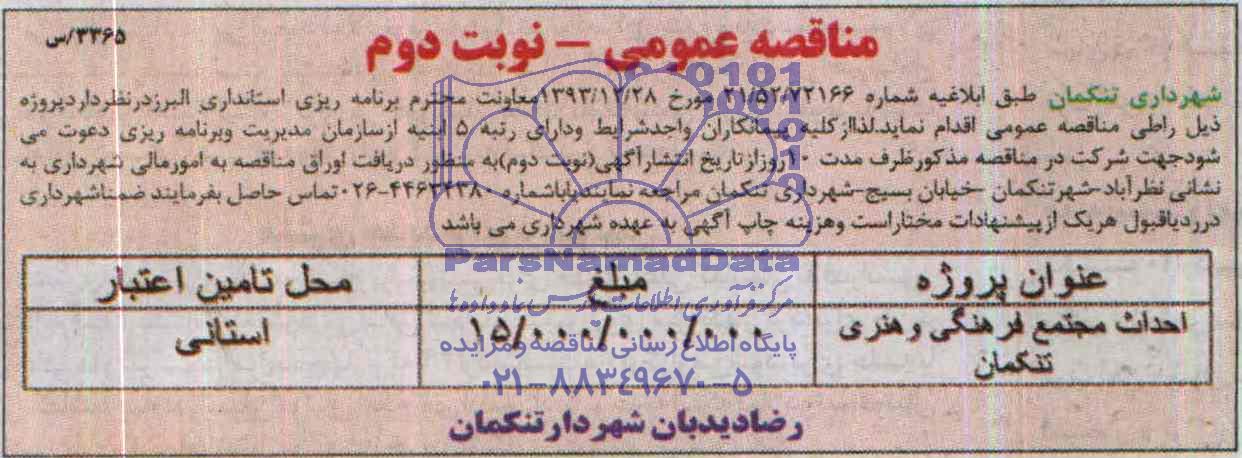 ۳۳۶۵/س
مناقصه عمومی – نوبت دوم
شهرداری تنکمان طبق ابلاغیه شماره ۲۱/۵۲/۷۲۱۶۶ مورخ ۱۳۹۳/۱۲/۲۸ معاونت محترم برنامه ریزی استانداری البرزدرنظرداردپروژه
ذیل راطی مناقصه عمومی اقدام نماید.لذاازکلیه پیمانکاران واجدشرایط ودارای رتبه ۵ ابنیه ازسازمان مدیریت وبرنامه ریزی دعوت می
شودجهت شرکت در مناقصه مذکورظرف مدت ۱۰روزازتاریخ انتشارآگهی(نوبت دوم)به منظور دریافت اوراق مناقصه به امورمالی شهرداری به
نشانی نظرآباد-شهرتنکمان -خیابان بسیج-شهرداری تنکمان مراجعه نمایندیاباشماره تماس حاصل بفرمایند ضمناشهرداری
درردیاقبول هریک ازپیشنهادات مختاراست وهزینه چاپ آگهی به عهده شهرداری می باشد
عنوان پروژه مبلغ محل تامین اعتبار
احداث مجتمع فرهنگی وهنری ۱۵/۰۰۰/۰۰۰/۰۰۰ استانی
تنکمان
رضادیدبان شهردارتنکمان
ParsNamadData
مرکز فرآوری اطلاعات پارس نماد داده ها
پایگاه اطلاع رسانی مناقصه و مزایده
۰۲۱-۸۸۳۴۹۶۷۰-۵